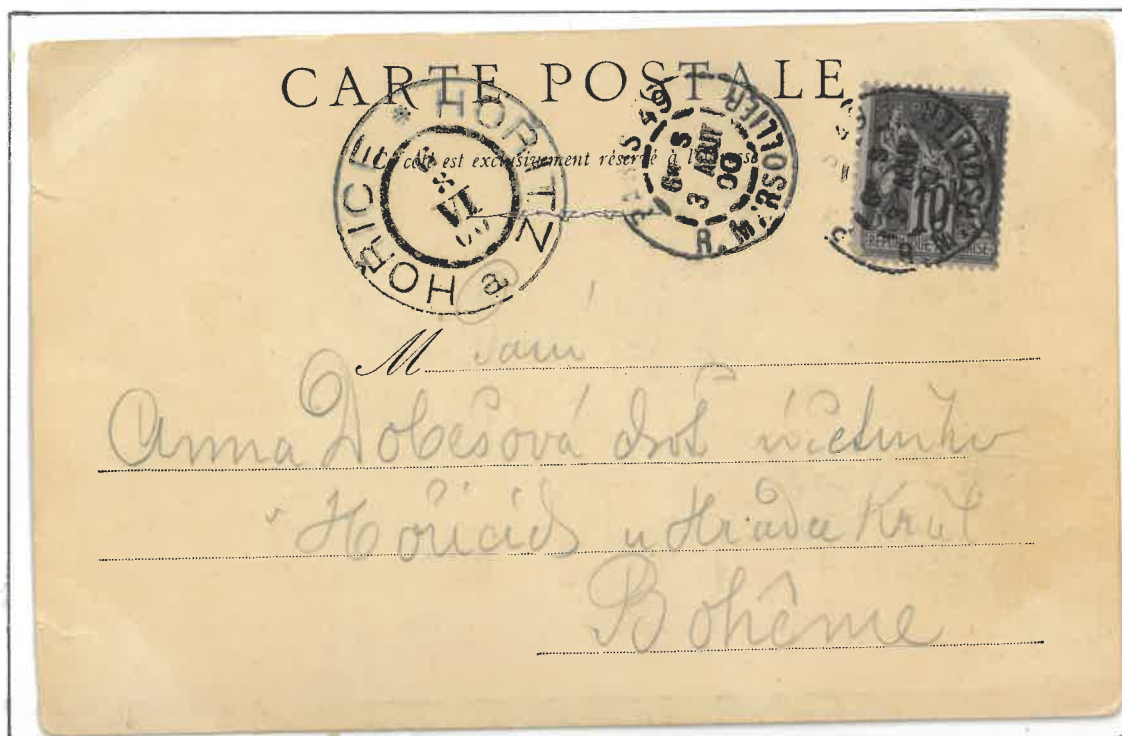 CARTE POSTALE
Ce côté est exclusivement réservé à l'adresse
HORITZ * HOŘICE a
8 VI 00
PARIS 49 R. MARSOLLIER
6E S 3 AOUT 00
R. MARSOLLIER
10
M Paní
Anna Dobešová
v Hořicích u Hradce Král
Bohême